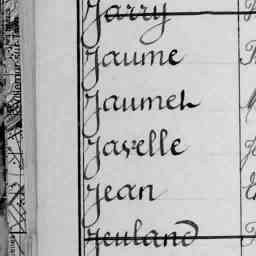 Jarry
Jaume
Jaumet
Javelle
Jean
Jeuland